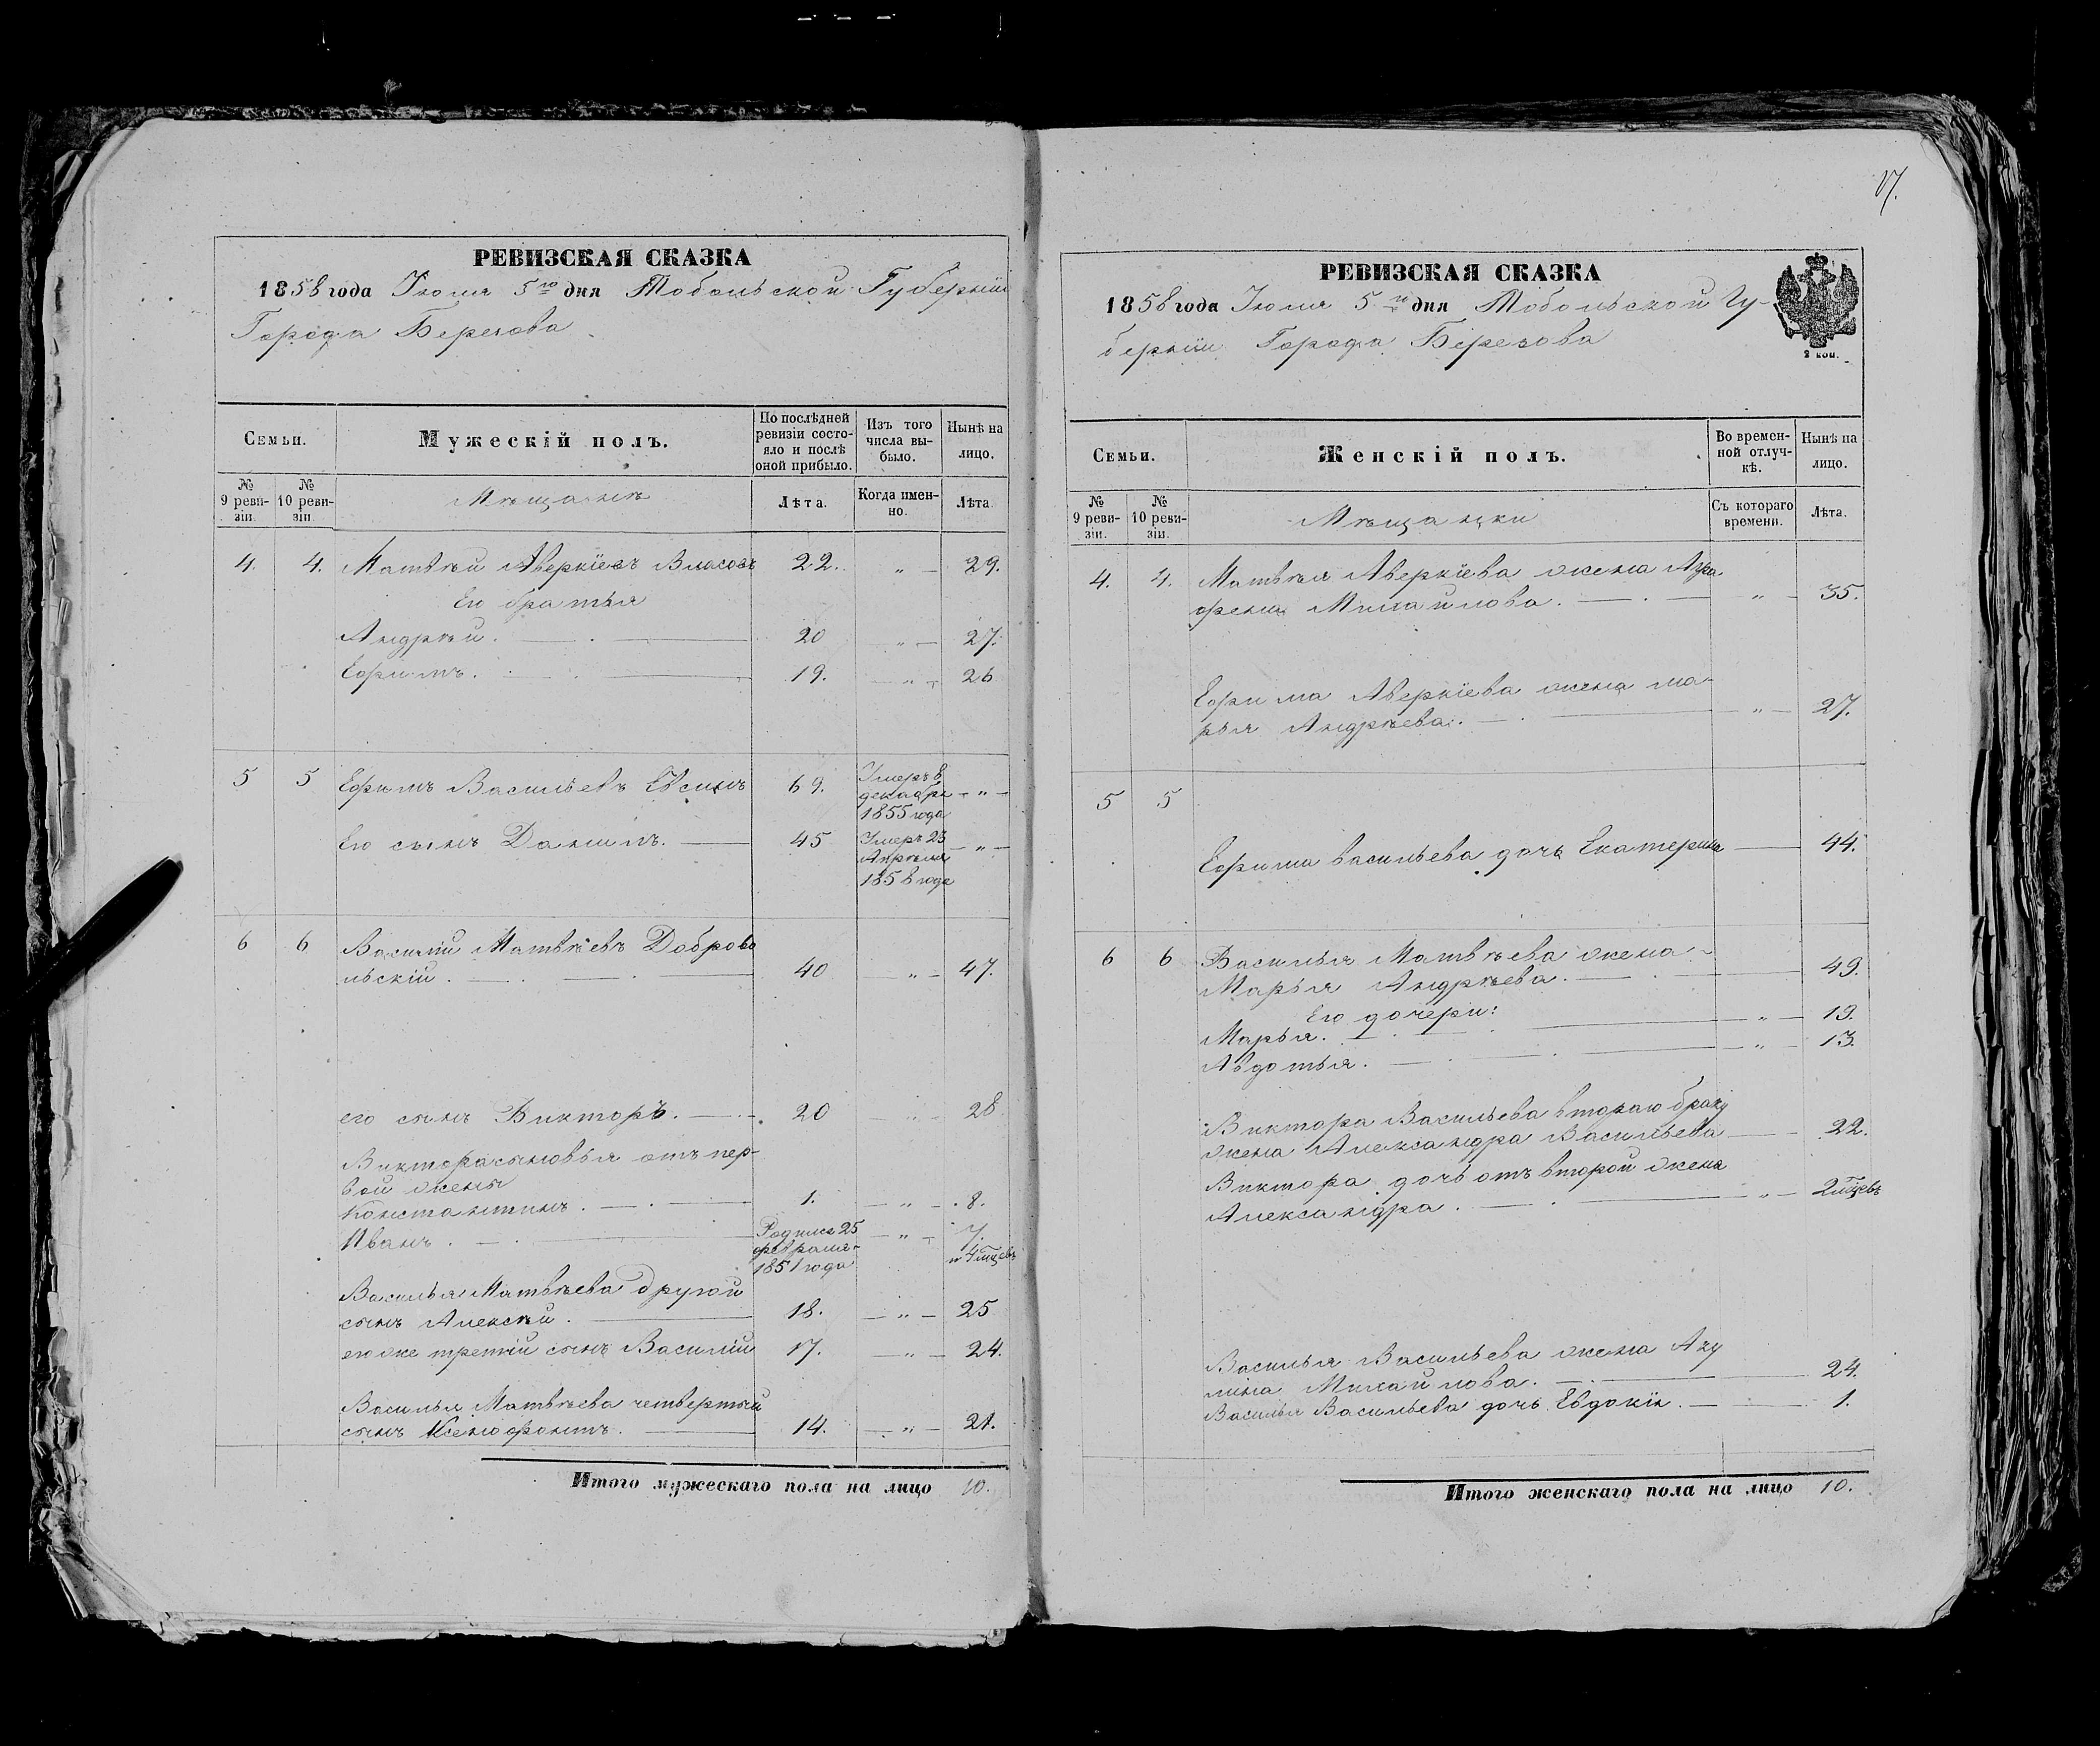 РЕВИЗСКАЯ СКАЗКА
1858 года Июля 5го дня Тобольской Губерніи
Города Березова
Семьи.
Мужескій полъ.
По послѣдней ревизіи состояло и послѣ оной прибыло.
Изъ того числа выбыло.
Нынѣ на лицо.
№ 9 ревизіи.
№ 10 ревизіи.
Мѣщане
Лѣта.
Когда именно.
Лѣта.
4. 4. Матвѣй Аверкіевъ Власовъ 22. „ 29.
Его братья
Андрей. 20 „ 27.
Ефимъ. 19. „ 26
5 5 Ефимъ Васильевъ Евсинъ 69. Умеръ в декабре 1855 года „
Его сынъ Данилъ. 45 Умеръ 23 Апрѣля 1858 года „
6 6 Василій Матвѣевъ Доброво
льскій. 40 „ 47.
его сынъ Викторъ. 20 „ 28
Виктора сыновья отъ пер-
вой жены
Константинъ. 1. „ 8.
Иванъ. Родился 25 февраля 1851 года „ 7. и 4 мцевъ
Василья Матвѣева другой
сынъ Алексѣй. 18. „ 25
его же третій сынъ Василій 17. „ 24.
Василья Матвѣева четвертый
сынъ Ксенофонтъ. 14. „ 21.
Итого мужескаго пола на лицо 10.
17.
РЕВИЗСКАЯ СКАЗКА
1858 года Июля 5го дня Тобольской Гу-
берніи Города Березова
2 коп.
Семьи.
Женскій полъ.
Во временной отлучкѣ.
Нынѣ на лицо.
№ 9 ревизіи.
№ 10 ревизіи.
Мѣщанки
Съ котораго времени.
Лѣта.
4. 4. Матвѣя Аверкіева жена Агра
фена Михайлова. „ 35.
Ефима Аверкіева жена Ма-
рья Андрѣева. „ 27.
5 5
Ефима Васильева дочь Екатерина 44.
6 6 Василья Матвѣева жена
Марья Андрѣева. 49.
Его дочери:
Марья. „ 19.
Авдотья. „ 13.
Виктора Васильева втораго браку
жена Александра Васильева 22.
Виктора дочь отъ второй жены
Александра. „ 2 мцевъ
Василья Васильева жена Аку
лина Михайлова. 24.
Василья Васильева дочь Евдокія. 1.
Итого женскаго пола на лицо 10.